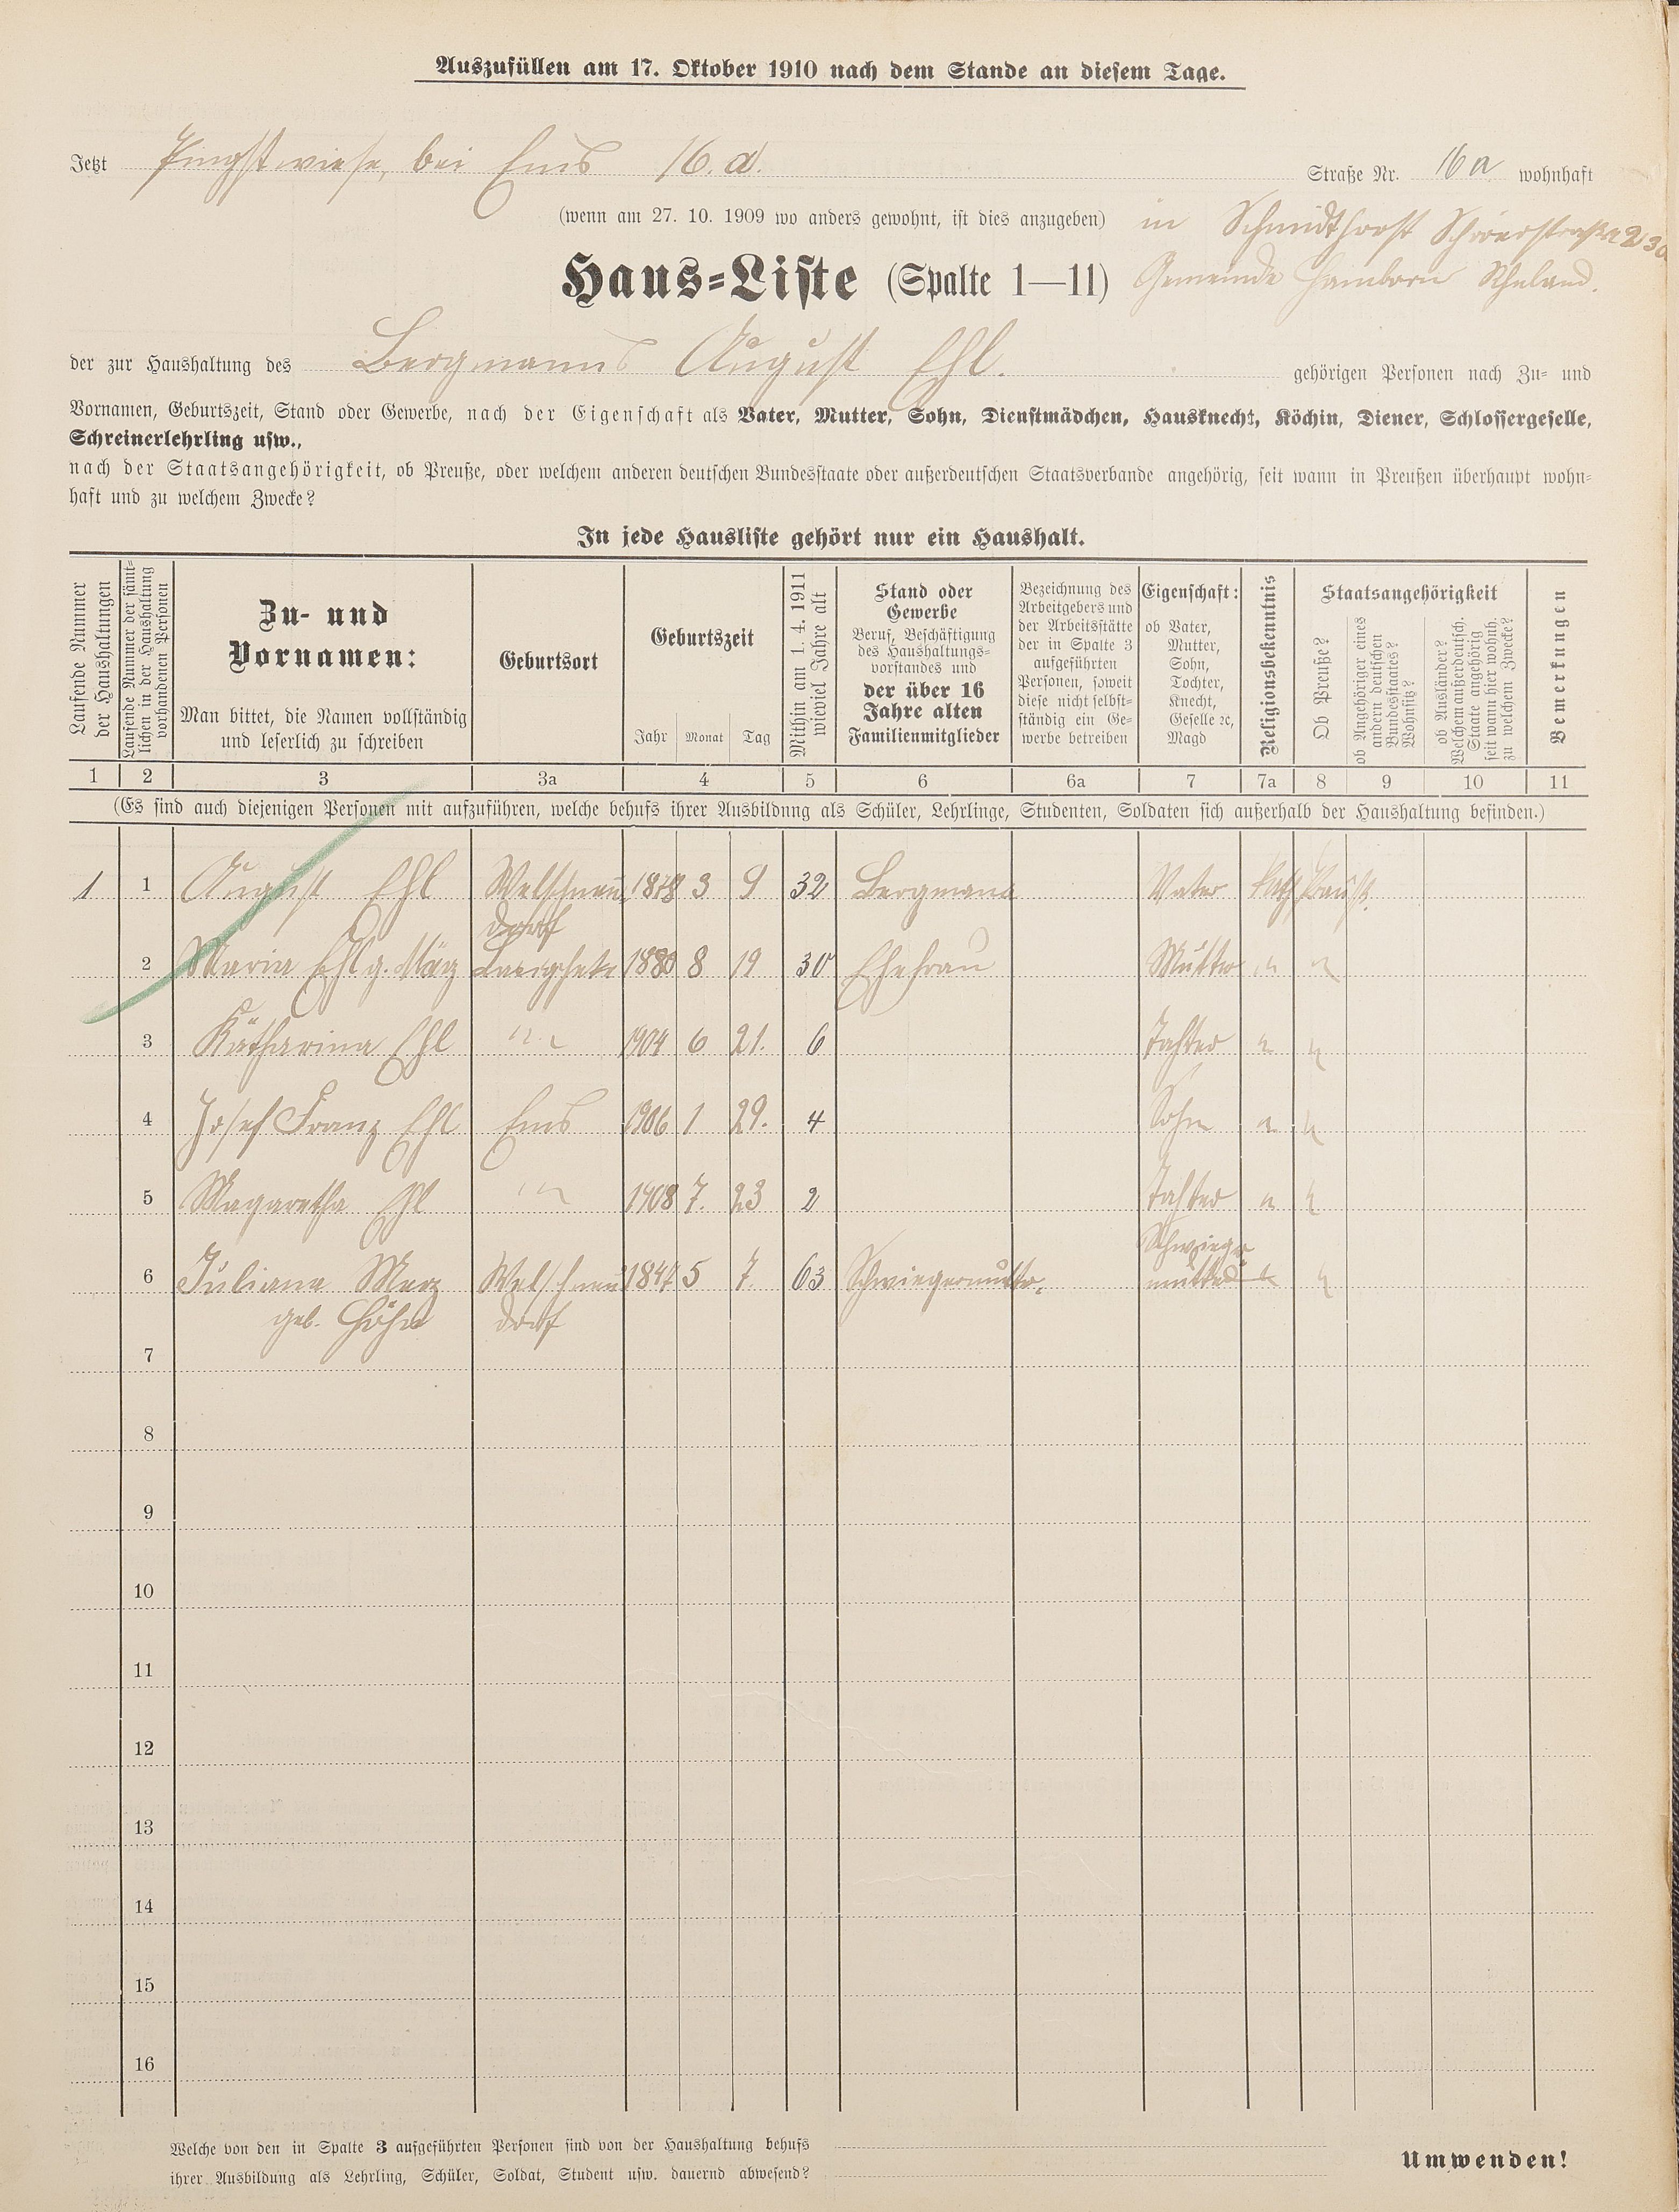 Auszufüllen am 17. Oktober 1910 nach dem Stande an diesem Tage.
Jetzt Pfingstwiese, bei Ems 16. a. Straße Nr. 16 a wohnhaft
(wenn am 27. 10. 1909 wo anders gewohnt, ist dies anzugeben) in Schmidthorst
Haus-Liste (Spalte 1—11) Gemeinde Hamborn Rhnland.
der zur Haushaltung des Bergmanns August Ehl. gehörigen Personen nach Zu- und
Vornamen, Geburtszeit, Stand oder Gewerbe, nach der Eigenschaft als Vater, Mutter, Sohn, Dienstmädchen, Hausknecht, Köchin, Diener, Schlossergeselle,
Schreinerlehrling usw.,
nach der Staatsangehörigkeit, ob Preuße, oder welchem anderen deutschen Bundesstaate oder außerdeutschen Staatsverbande angehörig, seit wann in Preußen überhaupt wohn-
haft und zu welchem Zwecke?
In jede Hausliste gehört nur ein Haushalt.
Laufende Nummer
der Haushaltungen
Laufende Nummer der sämt-
lichen in der Haushaltung
vorhandenen Personen
Zu- und
Vornamen:
Man bittet, die Namen vollständig
und leserlich zu schreiben
Geburtsort
Geburtszeit
Jahr Monat Tag
Mithin am 1. 4. 1911
wieviel Jahre alt
Stand oder
Gewerbe
Beruf, Beschäftigung
des Haushaltungs-
vorstandes und
der über 16
Jahre alten
Familienmitglieder
Bezeichnung des
Arbeitgebers und
der Arbeitsstätte
der in Spalte 3
aufgeführten
Personen, soweit
diese nicht selbst-
ständig ein Ge-
werbe betreiben
Eigenschaft:
ob Vater,
Mutter,
Sohn,
Tochter,
Knecht,
Geselle ec,
Magd
Religionsbekenntnis
Staatsangehörigkeit
Ob Preuße?
ob Angehöriger eines
andern deutschen
Bundesstaates?
Wohnsitz?
ob Ausländer?
Welchem außerdeutsch.
Staate angehörig
seit wann hier wohnh.
zu welchem Zwecke?
Bemerkungen
1 2 3 3a 4 5 6 6a 7 7a 8 9 10 11
(Es sind auch diejenigen Personen mit aufzuführen, welche behufs ihrer Ausbildung als Schüler, Lehrlinge, Studenten, Soldaten sich außerhalb der Haushaltung befinden.)
1 1 August Ehl Welschneu 1878 3 9 32 Bergmann Vater kath
dorf
2 Maria Ehl g. 1880 8 19 30 Ehefrau Mutter " "
3 Katharina Ehl " 1904 6 21. 6 Tochter " "
4 Josef Franz Ehl Ems 1906 1 29. 4 Sohn " "
5 Magaretha Ehl " 1908 7. 23 2 Tochter " "
Schwieger
6 Juliana Merz Welschneu 1847 5 7. 63 Schwiegermutter. mutter " "
geb. dorf
7
8
9
10
11
12
13
14
15
16
Welche von den in Spalte 3 aufgeführten Personen sind von der Haushaltung behufs
ihrer Ausbildung als Lehrling, Schüler, Soldat, Student usw. dauernd abwesend?
Umwenden!